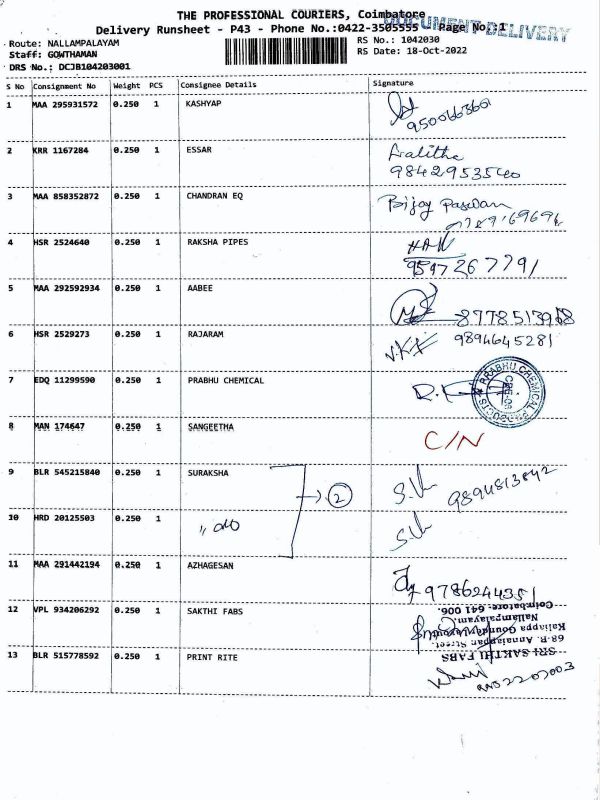 THE PROFESSIONAL COURIERS, Coimbatore
DOCUMENT DELIVERY
Delivery Runsheet - P43 - Phone No.:0422-3505555 - Page No.:1
Route: NALLAMPALAYAM
RS No.: 1042030
Staff: GOWTHAMAN
RS Date: 18-Oct-2022
DRS No.: DCJB104203001
S No Consignment No Weight PCS Consignee Details Signature
1 MAA 295931572 0.250 1 KASHYAP
9500663601
2 KRR 1167284 0.250 1 ESSAR Lalitha
9842953540
3 MAA 858352872 0.250 1 CHANDRAN EQ Bijoy Paswan
4 HSR 2524640 0.250 1 RAKSHA PIPES
9597267791
5 MAA 292592934 0.250 1 AABEE
6 HSR 2529273 0.250 1 RAJARAM 9894645281
7 EDQ 11299590 0.250 1 PRABHU CHEMICAL
PRABHU CHEMICAL
8 MAN 174647 0.250 1 SANGEETHA C/N
9 BLR 545215840 0.250 1 SURAKSHA 2
9894813842
10 HRD 20125503 0.250 1
11 MAA 291442194 0.250 1 AZHAGESAN
9786244351
12 VPL 934206292 0.250 1 SAKTHI FABS
SRI SAKTHI FABS
68-B, Annaiappan Street,
Kaliappa Goundar Layout,
Nallampalayam,
Coimbatore. 641 006.
13 BLR 515778592 0.250 1 PRINT RITE